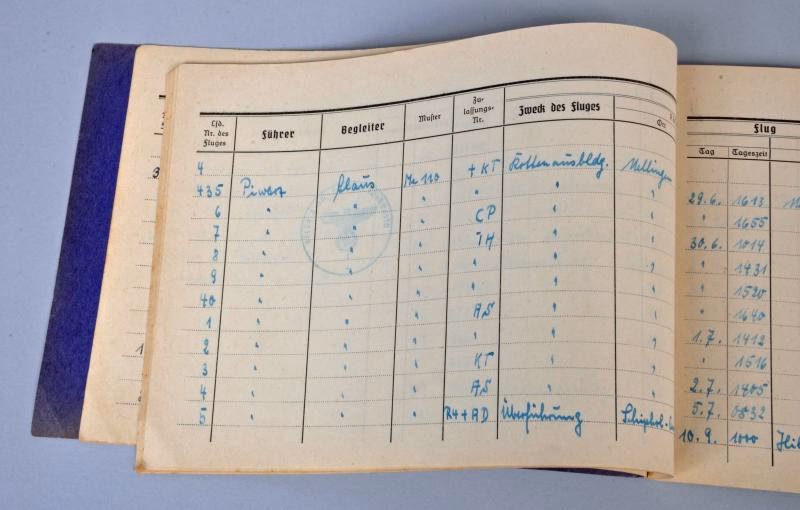 Lfd. Nr. des Fluges Führer Begleiter Muster Zu- lassungs- Nr. Zweck des Fluges Ort Flug
Tag Tageszeit
4
435 Piwarz Claus Me 110 + KT Rottenausbldg. 29.6. 1613
6 " " " CP " " " 1655
7 " " " TH " " 30.6. 1014
8 " " " " " " " 1431
9 " " " " " " " 1520
40 " " " " " " " 1640
1 " " " AS " " 1.7. 1412
2 " " " " " " " 1516
3 " " " KT " " 2.7. 1405
4 " " " AS " " 5.7. 0832
5 " " " R4+AD Überführung Schiphol- 10.9. 1000